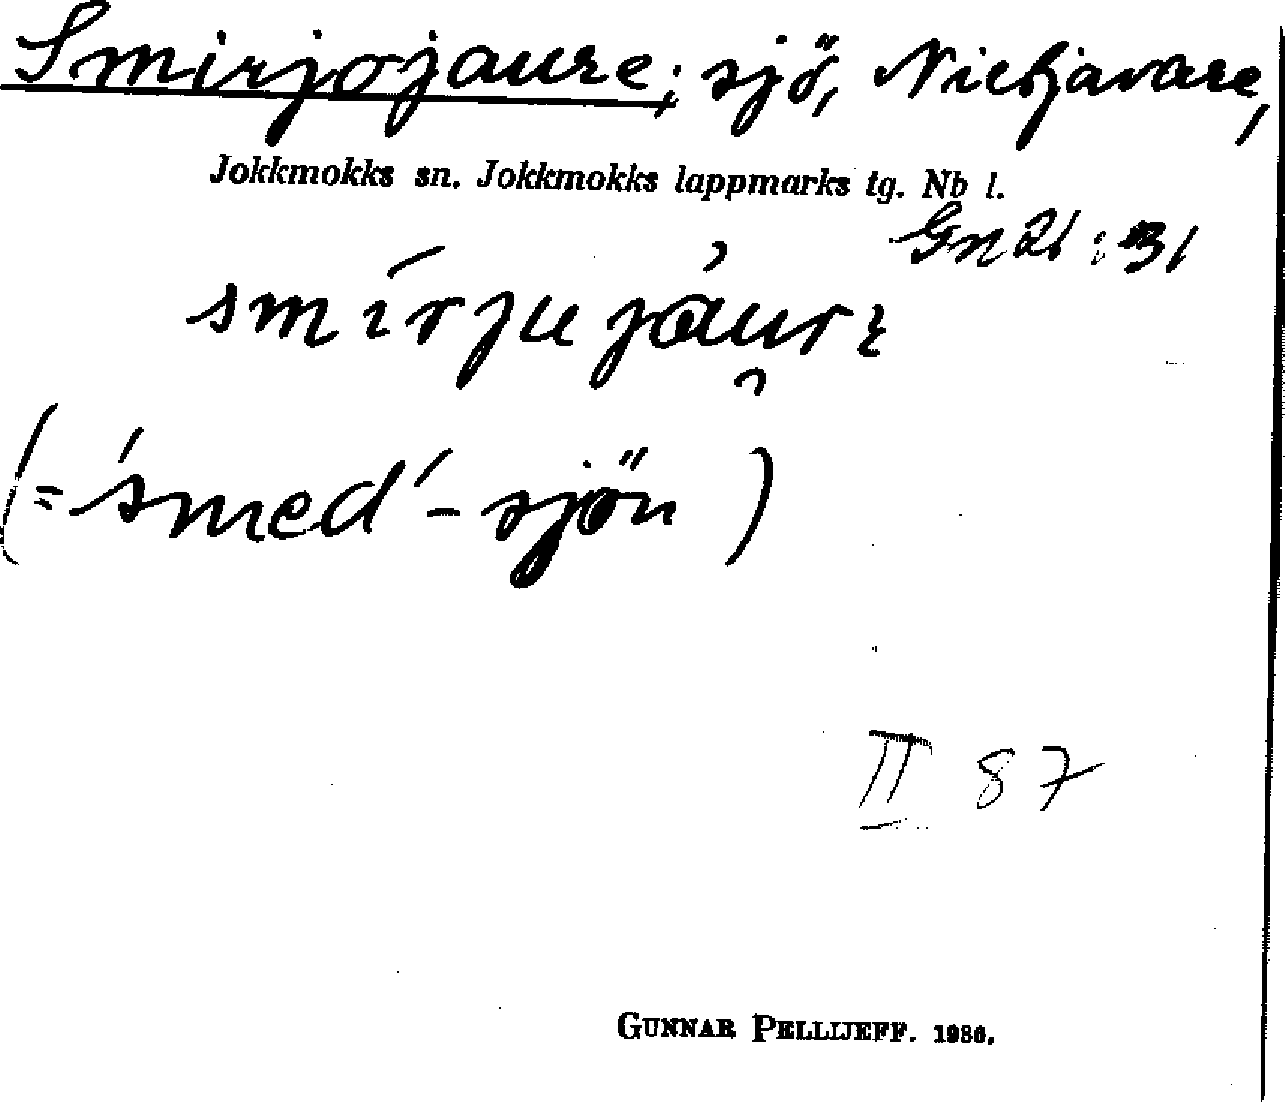 Smirjojaure; sjö, Nietjavare,
Jokkmokks sn. Jokkmokks lappmarks tg. Nb l.
Gn 21:31
smirjujáurɛ
(= ́smed ́- sjön)
II 87
GUNNAR PELLIJEFF. 1986.